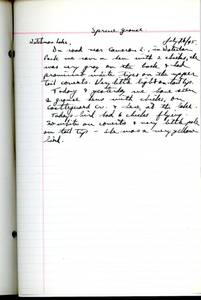 Spruce grouse
Waterton Lake, July 26/45.
On road near Cameron L., in Waterton
Park we saw a hen with 2 chicks, she
was very gray on the back & had
prominent white tips on the upper
tail coverts. Very little light on tail tips.
Today & yesterday we have seen
a grouse hens with chicks, on
& here at the lake.
Today's bird had 6 chicks flying
no white on coverts & very little pale
on tail tips - she was a very yellow
bird.